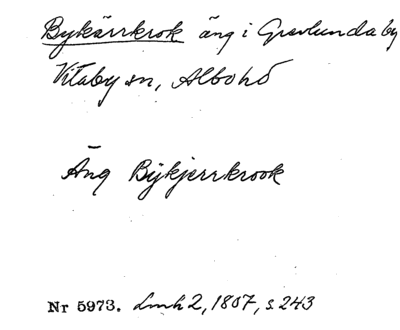 Bykärrkrok äng i Gravlunda by
Vitaby sn, Albo hd
Äng Bÿkjerrkrook
Nr 5973. Lmh 2, 1807, s 243